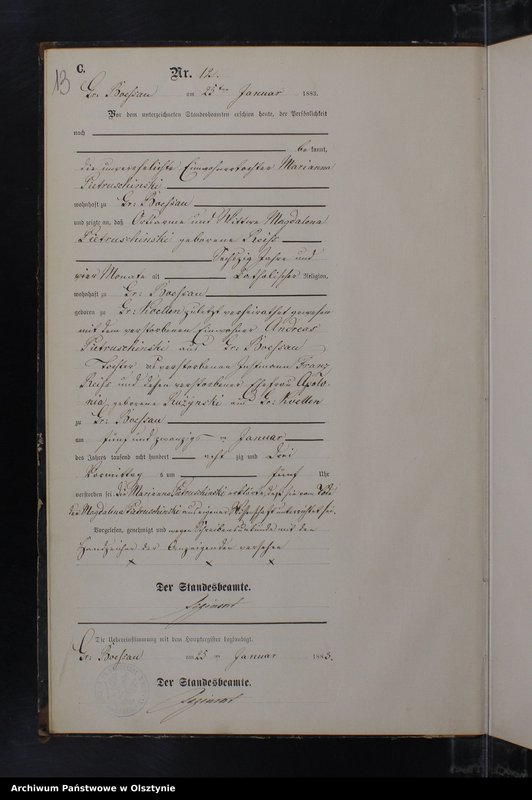 C.
13
Nr. 12.
Gr: Boessau am 25ten Januar 1883.
Vor dem unterzeichneten Standesbeamten erschien heute, der Persönlichkeit
nach
bekannt,
die unverehelichte Einwohnertochter Marianna
Pietruschinski
wohnhaft zu Gr: Boessau
und zeigte an, daß Ortsarme und Wittwe Magdalena
Pietruschinski geborene Reiss
Sechzig Jahre und
vier Monate alt Catholischer Religion,
wohnhaft zu Gr: Boessau
geboren zu Gr: Koellen zuletzt verheirathet gewesen
mit dem verstorbenen Einwohner Andreas
Pietruschinski aus Gr: Boessau
Tochter des verstorbenen Instmann Franz
Reiss und dessen verstorbener Ehefrau Apolo-
nia, geborene Ruzynski aus Gr: Koellen
zu Gr: Boessau
am fünf und zwanzigsten Januar
des Jahres tausend acht hundert acht zig und Drei
Vormittag s um fünf Uhr
verstorben sei die Marianna Pietruschinski erklärte, daß sie vom Tode
der Magdalena Pietruschinski aus eigener Wissenschaft unterrichtet sei.
Vorgelesen, genehmigt und wegen Schreibensunkunde mit dem
Handzeichen der Anzeigenden versehen
x x x
Der Standesbeamte.
Die Uebereinstimmung mit dem Hauptregister beglaubigt.
Gr: Boessau am 25 ten Januar 1883.
Der Standesbeamte.
Archiwum Państwowe w Olsztynie